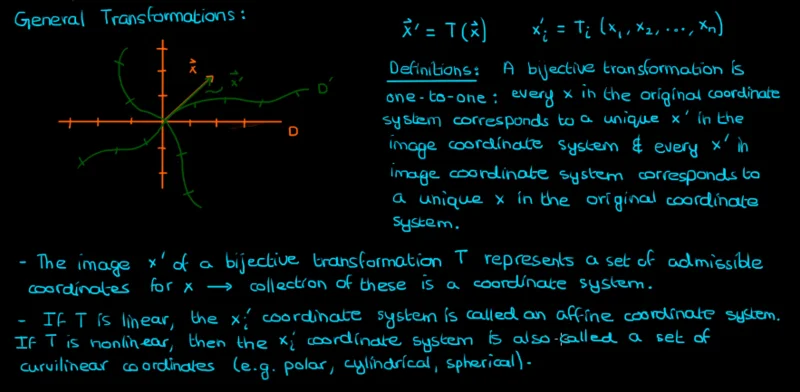 General Transformations:
x⃗' = T(x⃗) x'ᵢ = Tᵢ (x₁, x₂, ..., xₙ)
x⃗
x⃗'
D'
D
Definitions: A bijective transformation is
one-to-one: every x in the original coordinate
system corresponds to a unique x' in the
image coordinate system & every x' in
image coordinate system corresponds to
a unique x in the original coordinate
system.
- The image x' of a bijective transformation T represents a set of admissible
coordinates for x → collection of these is a coordinate system.
- If T is linear, the xᵢ' coordinate system is called an affine coordinate system.
If T is nonlinear, then the xᵢ' coordinate system is also called a set of
curvilinear coordinates (e.g. polar, cylindrical, spherical).